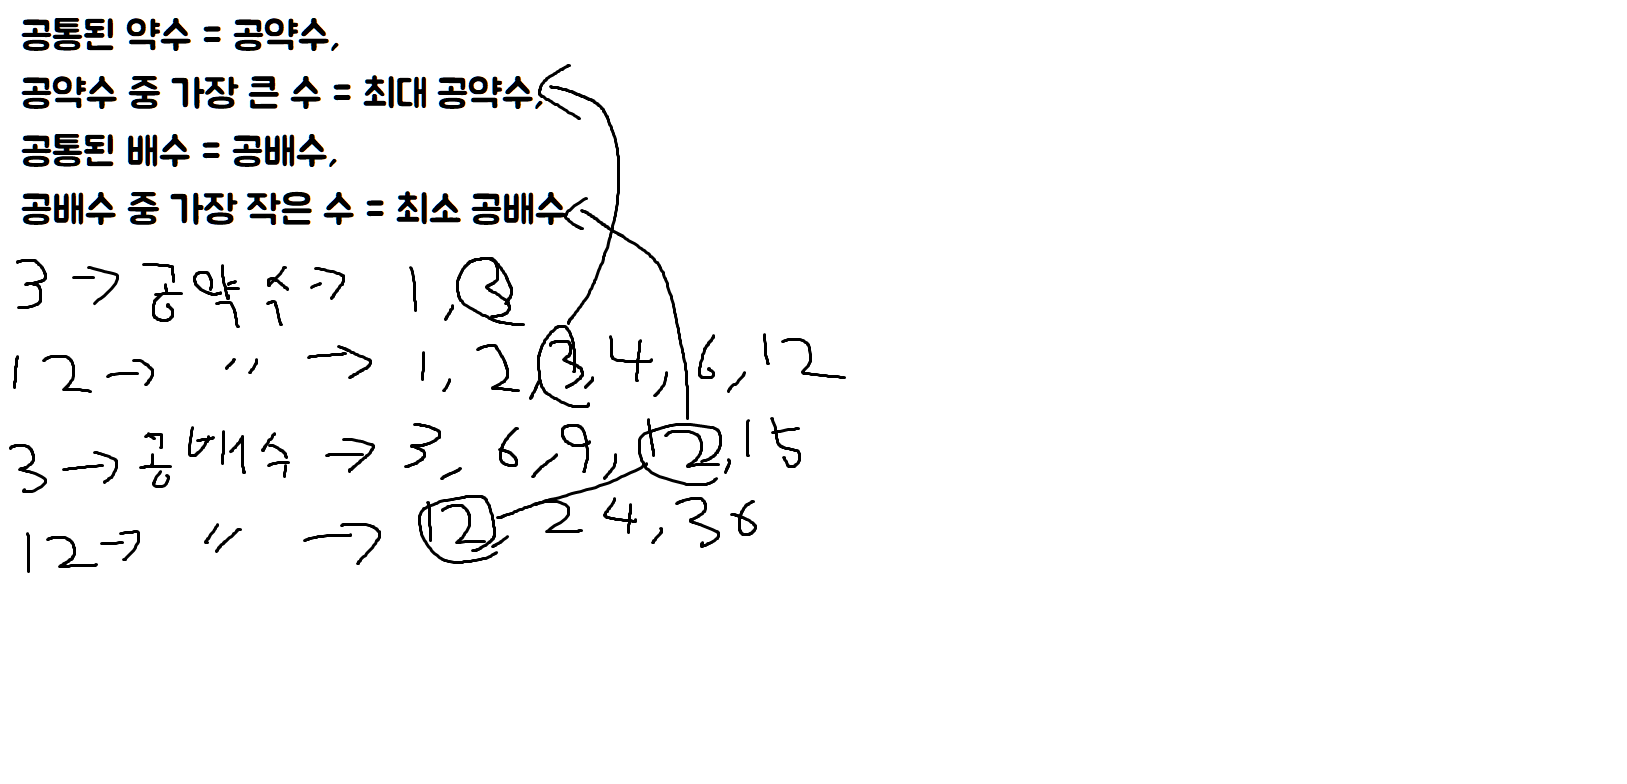 공통된 약수 = 공약수,
공약수 중 가장 큰 수 = 최대 공약수,
공통된 배수 = 공배수,
공배수 중 가장 작은 수 = 최소 공배수
3 → 공약수 → 1, 3
12 → 〃 → 1, 2, 3, 4, 6, 12
3 → 공배수 → 3, 6, 9, 12, 15
12 → 〃 → 12, 24, 36